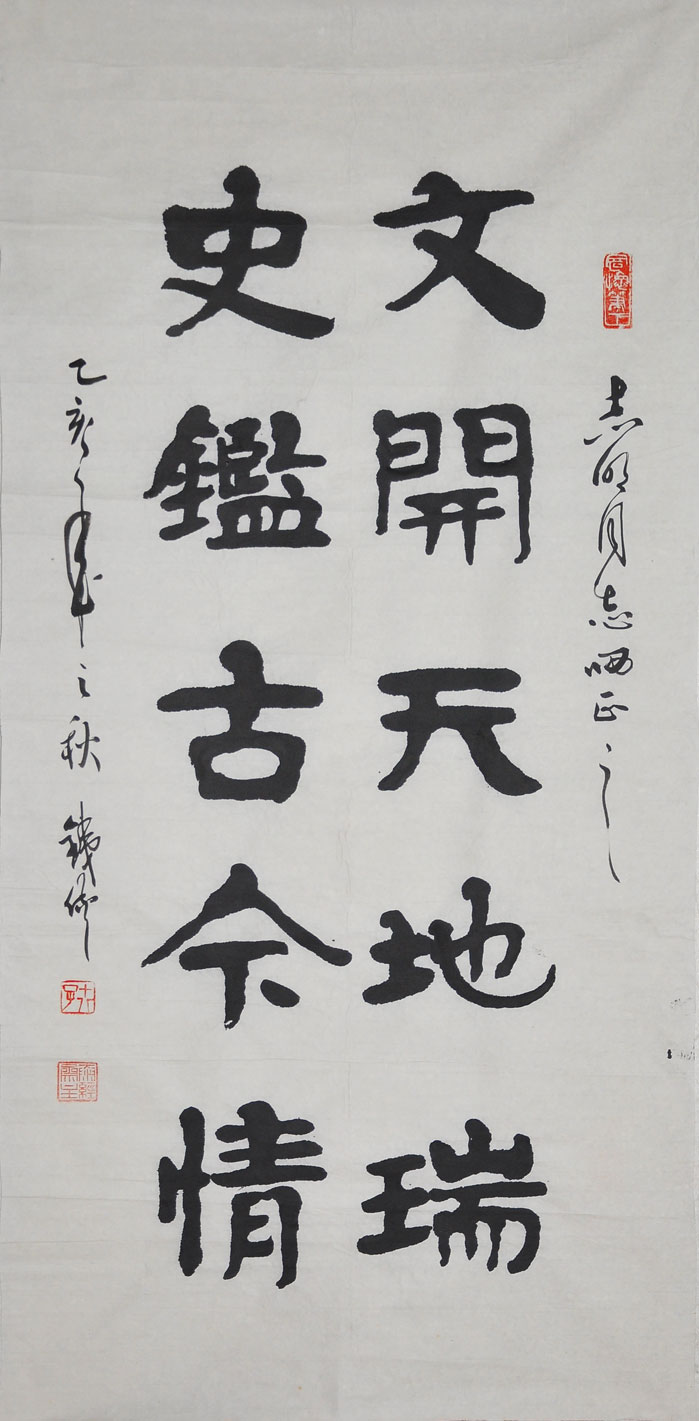 志明同志哂正之
文開天地瑞
史鑑古今情
乙亥年之秋